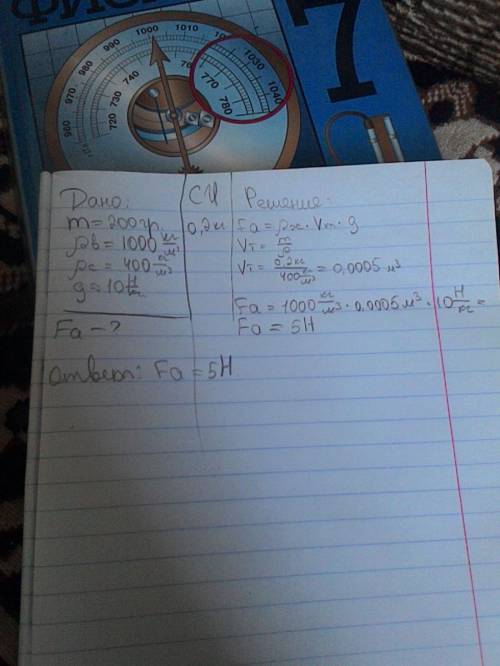 ФИЗИК
7
960 970 980 990 1000 1010 1030 1040
720 730 740 760 770 780
Дано:
m = 200 гр.
ρв = 1000 кг/м³
ρс = 400 кг/м³
g ≈ 10 Н/кг
Fa - ?
СИ
0,2 кг
Решение:
Fa = ρж · Vт · g
Vт = m/ρ
Vт = 0,2кг/400 кг/м³ = 0,0005 м³
Fa = 1000 кг/м³ · 0,0005 м³ · 10 Н/кг =
Fa = 5Н
ответ: Fa = 5Н